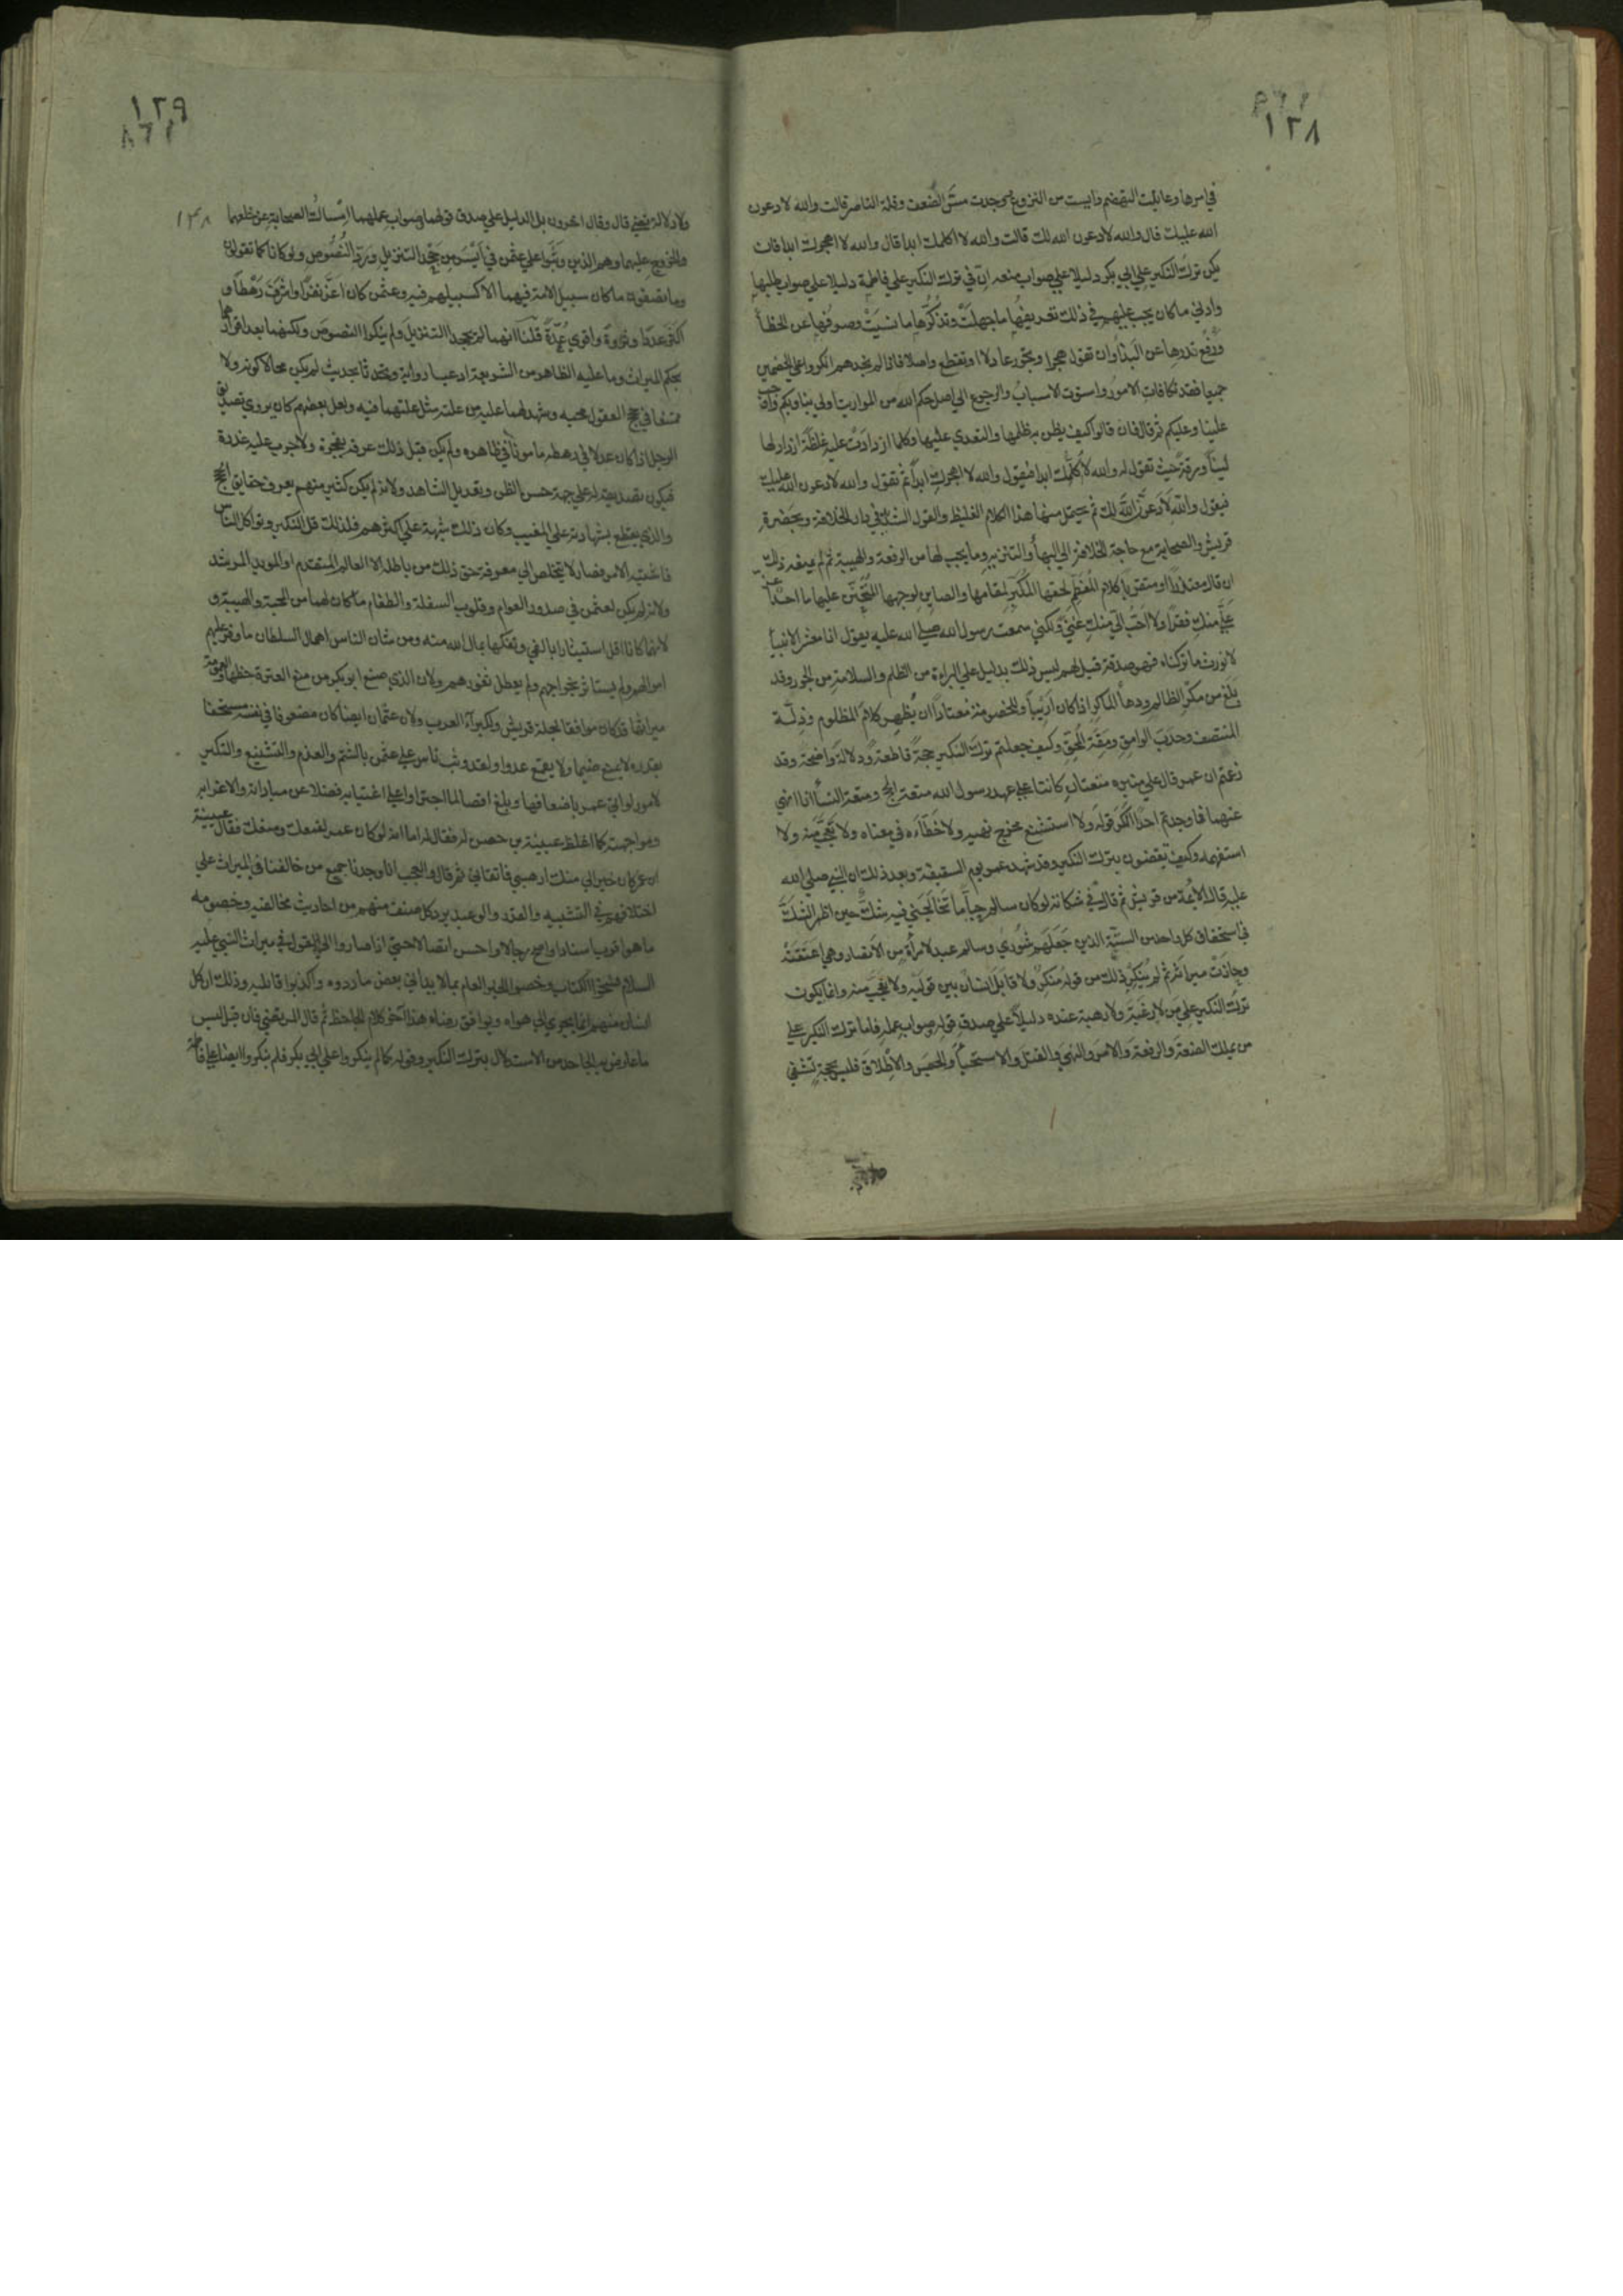 ١٢٨
في امرها وعاينت التهضم وايست من النزوع ووجدت مس الضعف وقلة الناصر قالت والله لادعون
الله عليك قال والله لادعون الله لك قالت والله لا اكلمك ابدا قال والله لا اهجرك ابدا فان
يكن ترك النكير علي ابي بكر دليلا علي صواب منعه ان في ترك النكير علي فاطمة دليلا علي صواب طلبها
وادني ما كان يجب عليهم في ذلك تعريفها ما جهلت وتذكيرها ما نسيت وصرفها عن الخطأ
ورفع قدرها عن البذاء وان تقول هجرا وتجور عادلا او تقطع واصلا فاذا لم نجدهم انكروا علي الخصمين
جميعا فقد تكافات الامور واستوت الاسباب والرجوع الي اصل حكم الله من المواريث اولي بنا وبكم واوجب
علينا وعليكم ثم قال فان قالوا كيف يظن به ظلمها والتعدي عليها وكلما ازدادت عليه غلظة ازداد لها
لينا ورقة حيث تقول له والله لا اكلمك ابدا فيقول والله لا اهجرك ابدا ثم تقول والله لادعون الله عليك
فيقول والله لادعون الله لك ثم يحتمل منها هذا الكلام الغليظ والقول الشديد في دار الخلافة وبحضرة
قريش والصحابة مع حاجة الخلافة الي البهاء والتنزيه وما يجب لها من الرفعة والهيبة ثم لم يمنعه ذلك
ان قال معتذرا او متقربا كلام المعظم لحقها المكبر لمقامها والصاين لوجهها المتحنن عليها ما احد اعز
علي منك فقرا ولا احب الي منك غني ولكني سمعت رسول الله صلي الله عليه يقول انا معشر الانبيا
لا نورث ما تركناه فهو صدقة قيل لهم ليس ذلك بدليل علي البراءة من الظلم والسلامة من الجور وقد
يبلغ من مكر الظالم ودهاء الماكر اذا كان اريبا وللخصومة معتادا ان يظهر كلام المظلوم وذلة
المنتصف وحدب الوامق ومقة المحق وكيف جعلتم ترك النكير حجة قاطعة ودلالة واضحة وقد
زعمتم ان عمر قال علي منبره متعتان كانتا علي عهد رسول الله متعة الحج ومتعة النسا انا انهي
عنهما فما وجدتم احدا انكر قوله ولا استشنع مخرج نهيه ولا خطاه في معناه ولا تعجب منه ولا
استفهمه وكيف تقضون بترك النكير وقد شهد عمر يوم السقيفة وبعد ذلك ان النبي صلي الله
عليه قال الايمة من قريش ثم قال في شكاته لو كان سالم حيا ما تخالجني فيه شك حين اظهر الشك
في استحقاق كل واحد من الستة الذين جعلهم شوري وسالم عبد لامراة من الانصار وهي اعتقته
وحازت ميراثه ثم لم ينكر ذلك من قوله منكر ولا قابل انسان بين قوليه ولا تعجب منه وانما يكون
ترك النكير علي من لا رغبة ولا رهبة عنده دليلا علي صدق قوله وصواب عمله فاما ترك النكير علي
من يملك الضعة والرفعة والامر والنهي والقتل والاستحيا والحبس والاطلاق فليس بحجة تشفي
١٢٩
ولا دلالة تضي قال وقال اخرون بل الدليل علي صدق قولهما وصواب عملهما امساك الصحابة عن خلعهما
والخروج عليهما وهم الذين وثبوا علي عثمن في ايسر من جحد التنزيل ورد النصوص ولو كانا كما تقولون
وما تصفون ما كان سبيل الامة فيهما الا كسبيلهم فيه وعثمن كان اعز نفرا واشرف رهطا و
اكثر عددا وثروة واقوي عدة قلنا انهما لم يجحدا التنزيل ولم ينكرا النصوص ولكنهما بعد اقرارهما
بحكم الميراث وما عليه الظاهر من الشريعة ادعيا رواية وتحدثا بحديث لم يكن محالا كونه ولا
ممتنعا في حجج العقول مجيه وشهد لهما عليه من علته مثل علتهما فيه ولعل بعضهم كان يري تصديق
الرجل اذا كان عدلا في رهطه مامونا في ظاهره ولم يكن قبل ذلك عرفه بفجرة ولا جرب عليه غدرة
فيكون تصديقه له علي جهة حسن الظن وتعديل الشاهد ولانه لم يكن كثير منهم يعرف حقايق الحجج
والذي يقطع بشهادته علي المغيب وكان ذلك شبهة علي اكثرهم فلذلك قل النكير وتواكل الناس
فاشتبه الامر فصار لا يتخلص الي معرفة حق ذلك من باطله الا العالم المتقدم او المويد المرشد
ولانه لم يكن لعثمن في صدور العوام وقلوب السفلة والطغام ما كان لهما من المحبة والهيبة و
لانهما كانا اقل استيثارا بالفي وتفكها بمال الله منه ومن شان الناس اهمال السلطان ما وفر عليهم
اموالهم ولم يستاثر بخراجهم ولم يعطل ثغورهم ولان الذي صنع ابو بكر من منع العترة حظها والعمومة
ميراثها قد كان موافقا لجلة قريش ولكبراء العرب ولان عثمان ايضا كان مضعوفا في نفسه مستخفا
بقدره لا يمنع ضيما ولا يقمع عدوا ولقد وثب ناس علي عثمن بالشتم والعذم والتشنيع والنكير
لامور لو اتي عمر باضعافها وبلغ اقصاها لما اجتراوا علي اغتيابه فضلا عن مباداته والاغراء به
ومواجهته كما اغلظ عيينة بن حصن له فقال له اما انه لو كان عمر لقمعك ومنعك فقال عيينة
ان عمر كان خيرا لي منك ارهبني فاتقاني ثم قال والعجب انا وجدنا جميع من خالفنا في الميراث علي
اختلافهم في التشبيه والقدر والوعيد يرد كل صنف منهم من احاديث مخالفيه وخصومه
ما هو اقرب اسنادا واصح رجالا واحسن اتصالا حتي اذا صاروا الي القول في ميراث النبي عليه
السلام نسخوا الكتاب وخصوا الخبر العام بما لا يداني بعض ما ردوه واكذبوا قائليه وذلك ان كل
انسان منهم انما يجري الي هواه ويوافق رضاه هذا اخر كلام الجاحظ ثم قال المرتضي فان قيل ليس
ما عارض به الجاحظ من الاستدلال بترك النكير وقوله كما لم ينكروا علي ابي بكر فلم ينكروا ايضا علي فاطمة